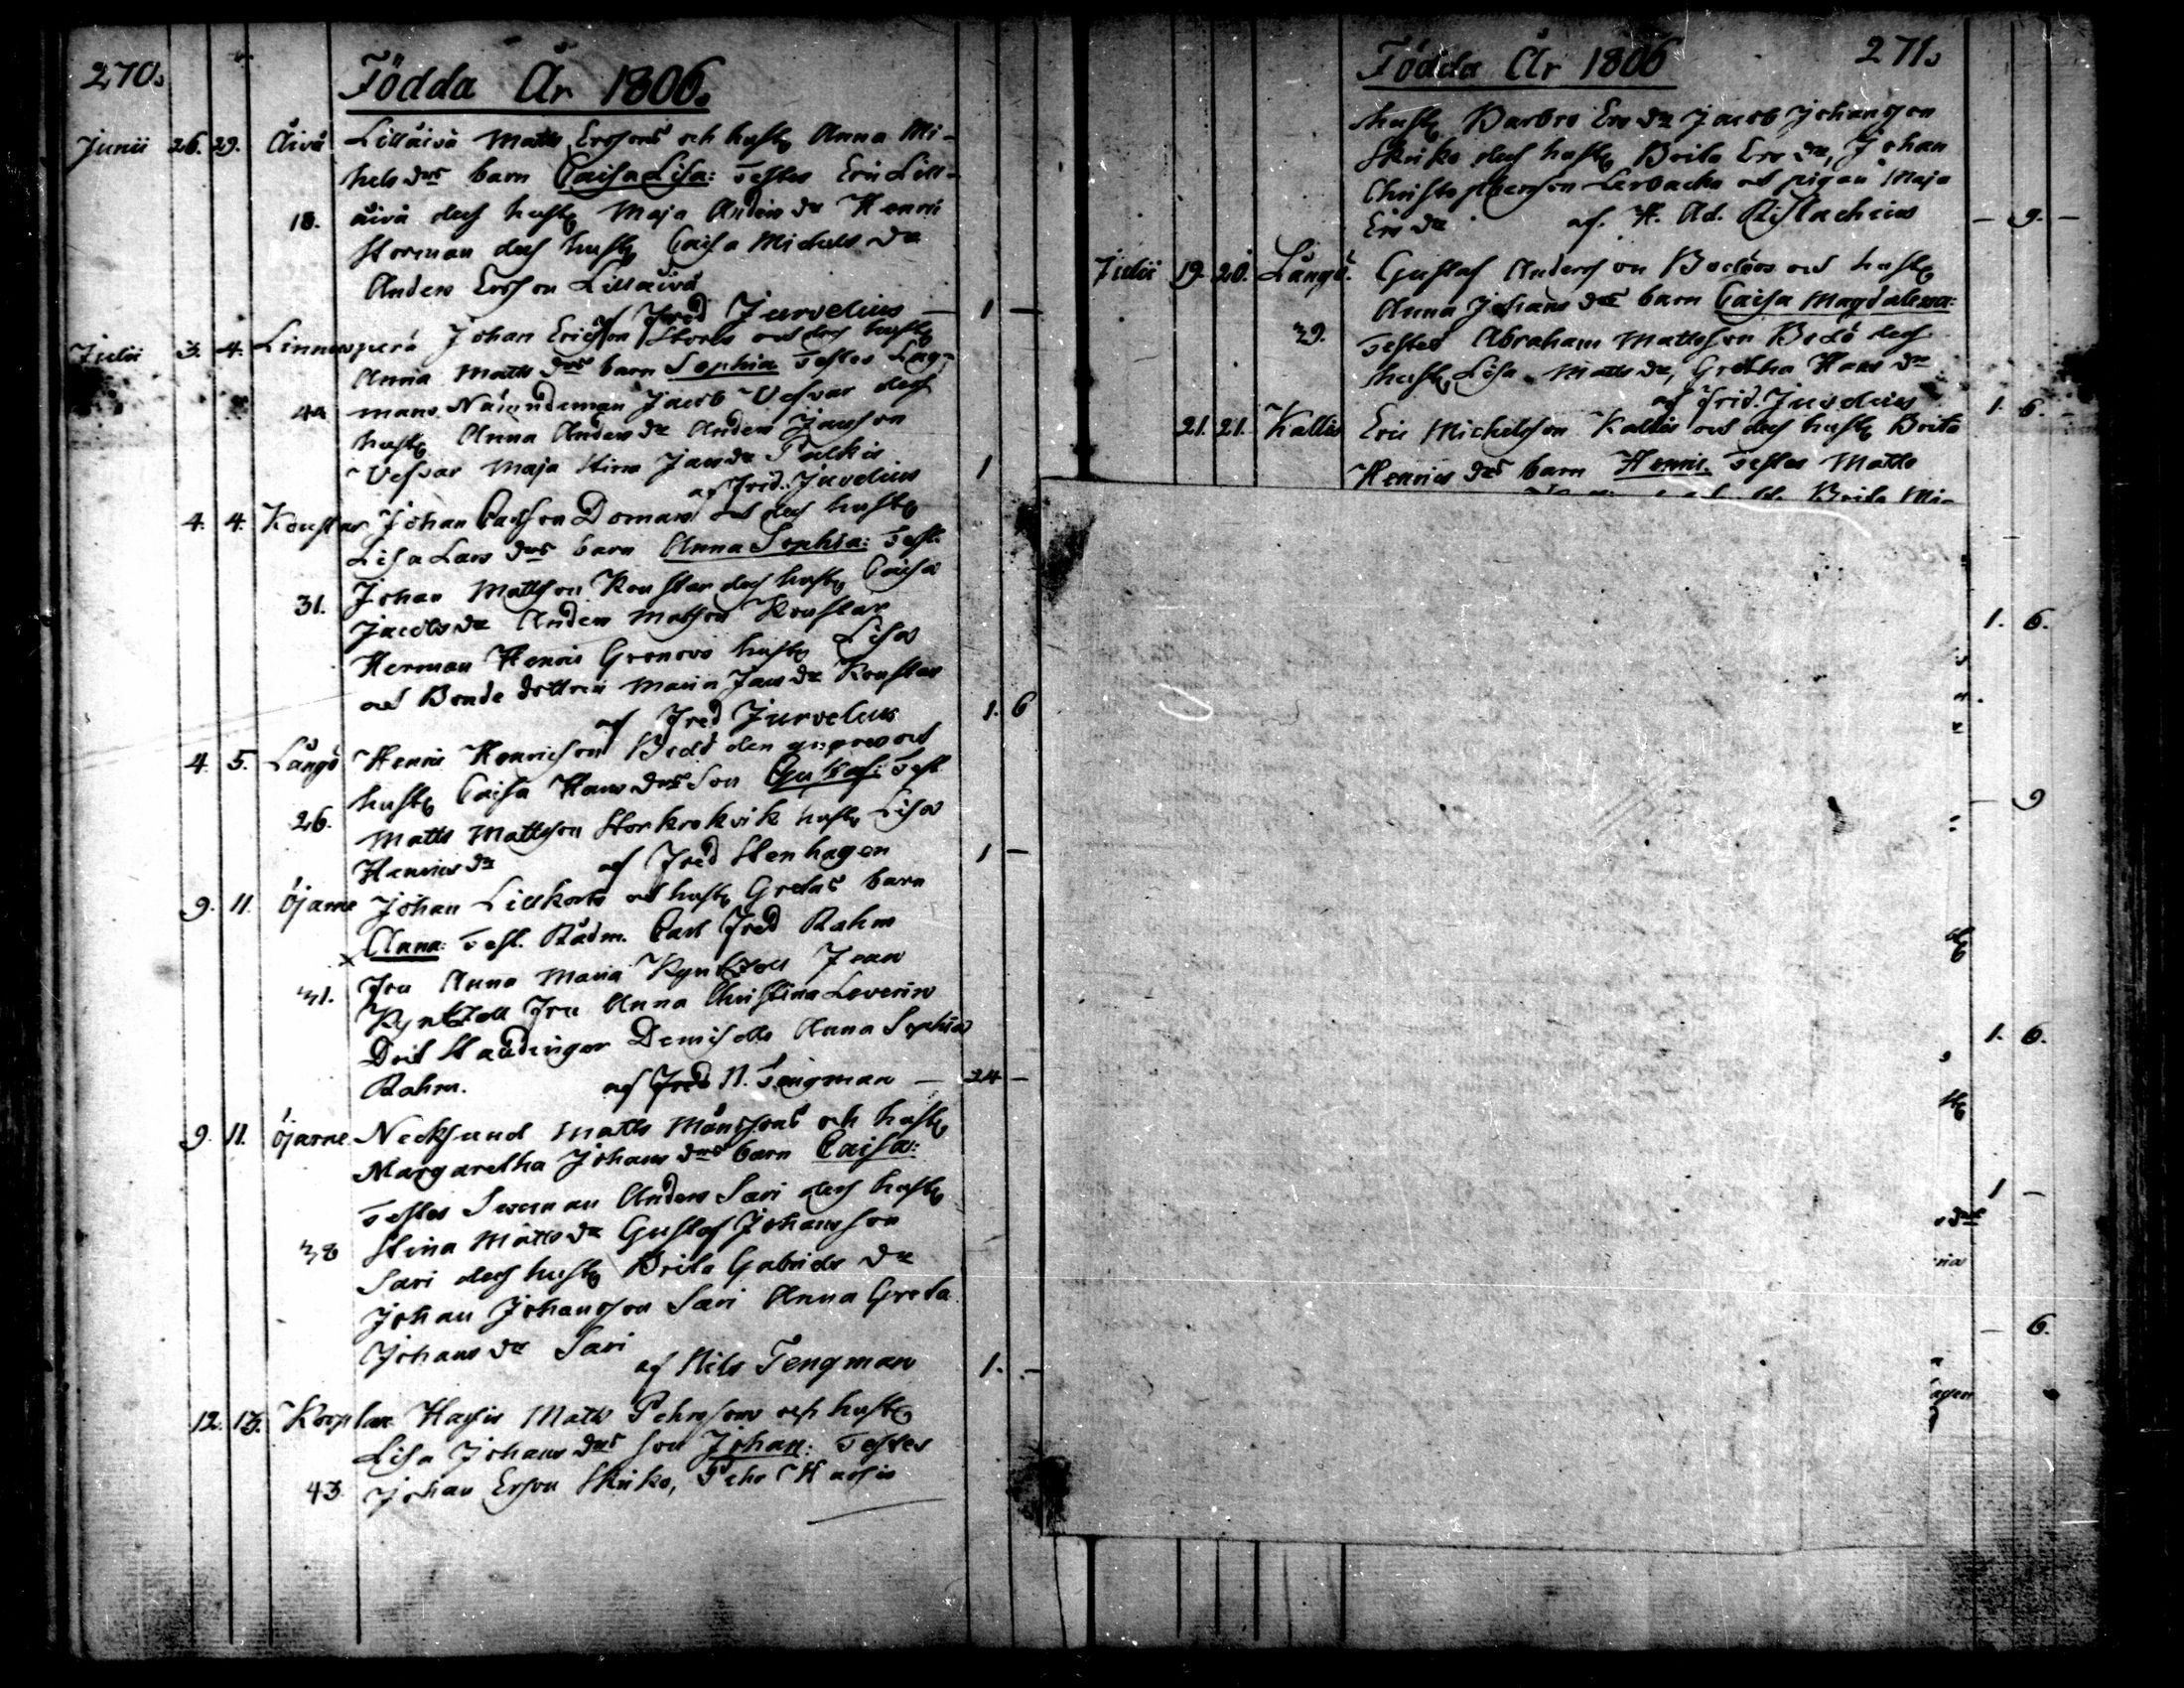 270.
Födda År 1806.
Junii 26. 29. Åivå Lillåivå Matts Erssons och hust. Anna Mi-
hels drs barn Caisa Lisa: Testes Eric Lill-
18. åivå dess hust. Maja Anders dr Henric
Storman dess hust. Caisa Michels dr
Anders Ersson Lillåivå
af Fred Jurvelius — 1 —
Julii 3. 4. Linnusperä Johan Ericsson Storls och dess hust.
Anna Matts drs barn Sophia Testes Lag-
44 mans Nämndeman Jacob Vesvar dess
hust. Anna Anders dr Anders Jansson
Vesvar Maja Stina Jans dr Palkis
af Frid. Juvelius 1
4. 4. Konstar Johan Carlson Domars och dess hust.
Lisa Lars drs barn Anna Sophia: Test.
31. Johan Mattsson Konstar dess hust. Caisa
Jacobs dr Anders Matsson Konstar
Herman Henric Gronovs hust. Lisa
och Bonde dottren Maria Jans dr Konstar
af Fred Jurvelius 1. 6
4. 5. Långö Henric Henricsson Bodö den och
hust. Caisa Hans drs Son Gustaf: Test.
26. Matts Mattsson Storkrokvik hust. Lisa
Henrics dr af Fred Stenhagen 1 —
9. 11. Öjarne Johan Lillkorts och hust. Gretas barn
x Anna: Test. Rådm. Carl Fred Rahm
31. Fru Anna Maria Kyntzell Jean
Kyntzell Fru Anna Christina Leverin
Drit Staudinger Demiselle Anna Sophia
Rahm. af Fred N. Tengman — 24 —
9. 11. Öjarne Necksund Matts Månssons och hust.
Margaretha Johans drs barn Caisa:
Testes Swenman Anders Sari dess hust.
38 Stina Matts dr Gustaf Johansson
Sari dess hust. Brita Gabriels dr
Johan Johansson Sari Anna Greta
Johans dr Sari
af Nils Tengman 1. —
12. 13. Korplax Hasis Matts Pehrssons och hust.
Lisa Johans drs son Johan: Testes
43. Johan Ersson Skriko, Pehr Hasis
Födda År 1806 271.
hust. Barbro Ers dr Jacob Johansson
Skriko dess hust. Brita Ers dr, Johan
Christophersson Lerbacka och pigan Maja
Ers dr af. H. Ad. Ristlachius — 9. —
Julii 19. 20. Långö. Gustaf Andersson Bodöos och hust.
Anna Johans drs barn Caisa Magdalena:
39. Testes Abraham Mattsson Bodö dess
hust. Lisa Matts dr, Gretha Hans dr
af Frid. Juvelius 1. 6.
21. 21. Kallis Eric Michelsson Kallis och dess hust. Brita
Henrics drs barn Henric. Testes Matts
Brita Mi-
1. 6.
— 9
1. 6.
1 —
— 6.